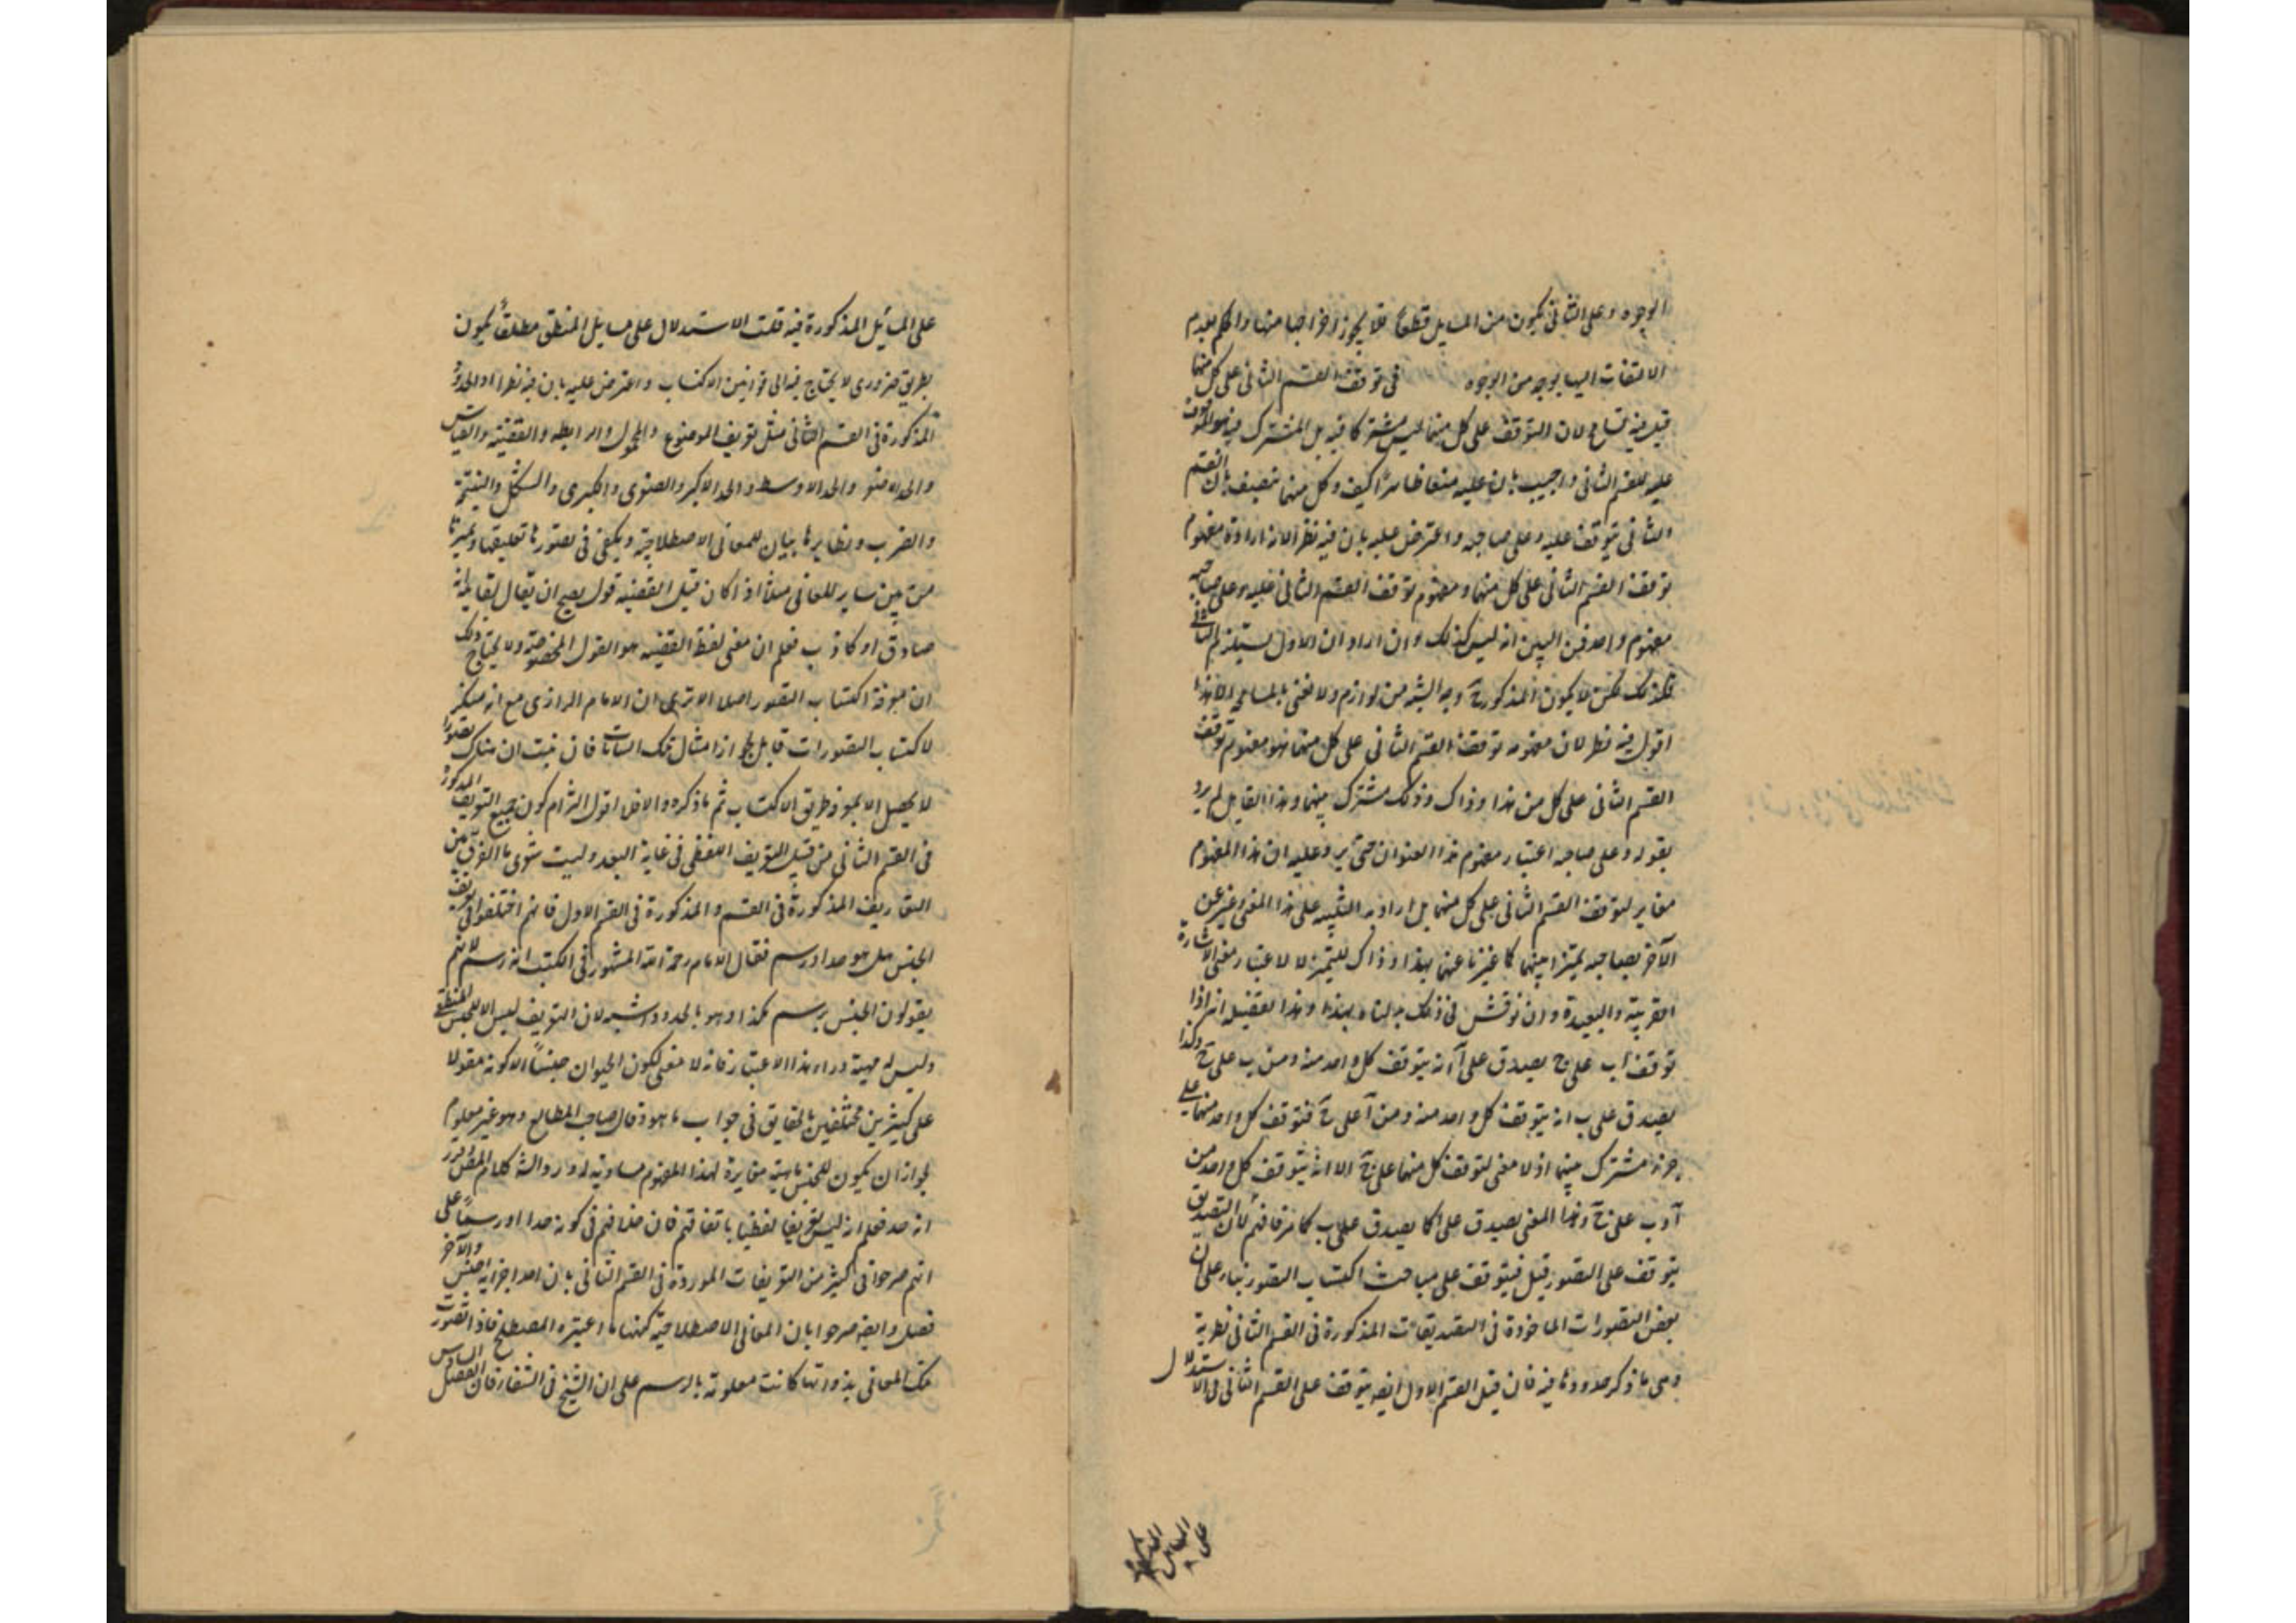 الوجوه وعلى الثانى يكون من المسايل قطعا فلا يجوز اخراجها منها والحكم بعدم
الالتفات اليها بوجه من الوجوه فى توقف القسم الثانى على كل منهما
قيل فيه تسامح لان التوقف على كل منهما ليس مشتركا فيه بل المشترك فيه هو الموقوف
عليه للقسم الثانى واجيب بان عليه منعا ظاهرا كيف وكل منهما متصف بان القسم
الثانى يتوقف عليه وعلى صاحبه واعترض عليه بان فيه نظرا لانه ان اراد ان مفهوم
توقف القسم الثانى على كل منهما ومفهوم توقف القسم الثانى عليه وعلى صاحبه
مفهوم واحد فمن البين انه ليس كذلك وان اراد ان الاول يستلزم الثانى
فكذلك لكن لا يكون المذكور ح وجه الشبه من لوازمه ولا نعنى بالمسامحة الا هذا
اقول فيه نظر لان مفهوم توقف القسم الثانى على كل منهما هو مفهوم توقف
القسم الثانى على كل من هذا وذاك وذلك مشترك بينهما وهذا القايل لم يرد
بقوله وعلى صاحبه اعتبار مفهوم هذا العنوان حتى يرد عليه ان هذا المفهوم
مغاير لتوقف القسم الثانى على كل منهما بل اراد به التنبيه على هذا المعنى وعبر عن
الآخر بصاحبه تميزا بينهما كما عبرنا عنهما بهذا وذاك للتميز لا لاعتبار معنى الاشارة
القريبة والبعيدة وان نوقش فى ذلك بدلناه بهذا وهذا تفصيله انه اذا
توقف اب على ج يصدق على آ انه يتوقف كل واحد منه ومن ب على ج وكذا
يصدق على ب انه يتوقف كل واحد منه ومن آ على ج فتوقف كل واحد منهما على
ج مشترك بينهما اذ لا معنى لتوقف كل منهما على ج الا انه يتوقف كل واحد من
آ و ب على ج وهذا المعنى يصدق على ا كما يصدق على ب كما عرفت لان التصديق
يتوقف على التصور قيل فيتوقف على مباحث اكتساب التصور بناء على ان
بعض التصورات الماخوذة فى التصديقات المذكورة فى القسم الثانى نظرية
وهى ما ذكر حدودها فيه فان قيل القسم الاول ايضا يتوقف على القسم الثانى فى الاستدلال
على المسايل
على المسائل المذكورة فيه قلت الاستدلال على مسايل المنطق مطلقا يكون
بطريق ضرورى لا يحتاج فيه الى قوانين الاكتساب واعترض عليه بان فيه نظرا اذ الحدود
المذكورة فى القسم الثانى مثل تعريف الموضوع والمحمول والرابطة والقضية والقياس
والحد الاصغر والحد الاوسط والحد الاكبر والصغرى والكبرى والشكل والنتيجة
والضرب ونظايرها بيان للمعانى الاصطلاحية ويكفى فى تصورها تعليقها وتميزها
من بين ساير المعانى مثلا اذا كان قيل القضية قول يصح ان يقال لقايله انه
صادق او كاذب فعلم ان معنى لفظ القضية هو القول المخصوص ولا يحتاج ذلك
الى معرفة اكتساب التصور اصلا الا ترى ان الامام الرازى مع انه منكر
لاكتساب التصورات قايل بجواز امثال تلك البيانات فان ثبت ان هناك تصورا
لا يحصل الا بمعرفة طريق الاكتساب ثم ما ذكره والا فلا اقول التزام كون جميع التعريف المذكور
فى القسم الثانى من قبيل التعريف اللفظى فى غاية البعد وليت شعرى ما الفرق بين
التعاريف المذكورة فى القسم والمذكورة فى القسم الاول فانهم اختلفوا فى تعريف
الجنس هل هو حد او رسم فقال الامام رحمة الله المشهور فى الكتب انه رسم لانهم
يقولون الجنس يرسم بكذا وهو بالحدود اشبه لان التعريف ليس الا للجنس المنطقى
وليس له مهية وراء هذا الاعتبار فانه لا معنى لكون الحيوان جنسا الا كونه مقولا
على كثيرين مختلفين بالحقايق فى جواب ما هو وقال صاحب المطالع وهو غير معلوم
لجواز ان يكون للجنس ماهية مغايرة لهذا المفهوم مساوية له
انه حد فعلم انه ليس تعريفا لفظيا باتفاقهم فان خلافهم فى كونه حدا او رسما على
انهم صرحوا فى كثير من التعريفات الموردة فى القسم الثانى بان احد اجزايه جنس والآخر
فصل وايضا صرحوا بان المعانى الاصطلاحية كنهها ما اعتبره المصطلح فاذا تصورت
تلك المعانى بذورتها كانت معلومة بالرسم على ان الشيخ فى الشفا